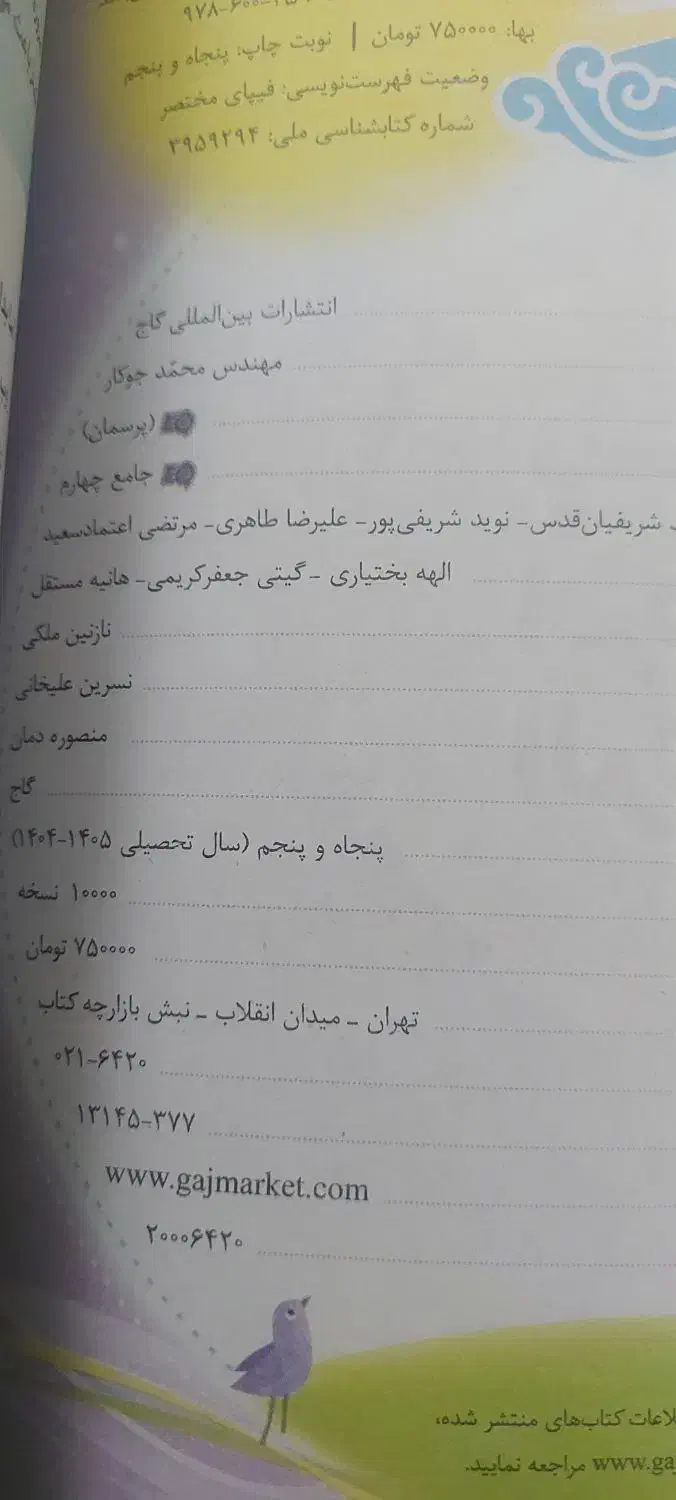 ۹۷۸-۶۰۰-
بها: ۷۵۰۰۰۰ تومان | نوبت چاپ: پنجاه و پنجم
وضعیت فهرست‌نویسی: فیپای مختصر
شماره کتابشناسی ملی: ۳۹۵۹۲۹۴
انتشارات بین‌المللی گاج
مهندس محمّد جوکار
(پرسمان)
جامع چهارم
شریفیان‌قدس- نوید شریفی‌پور- علیرضا طاهری- مرتضی اعتمادسعید
الهه بختیاری - گیتی جعفرکریمی- هانیه مستقل
نازنین ملکی
نسرین علیخانی
منصوره دمان
گاج
پنجاه و پنجم (سال تحصیلی ۱۴۰۵-۱۴۰۴)
۱۰۰۰۰ نسخه
۷۵۰۰۰۰ تومان
تهران - میدان انقلاب - نبش بازارچه کتاب
۰۲۱-۶۴۲۰
۱۳۱۴۵-۳۷۷
www.gajmarket.com
۲۰۰۰۶۴۲۰
کتاب‌های منتشر شده،
www.ga مراجعه نمایید.